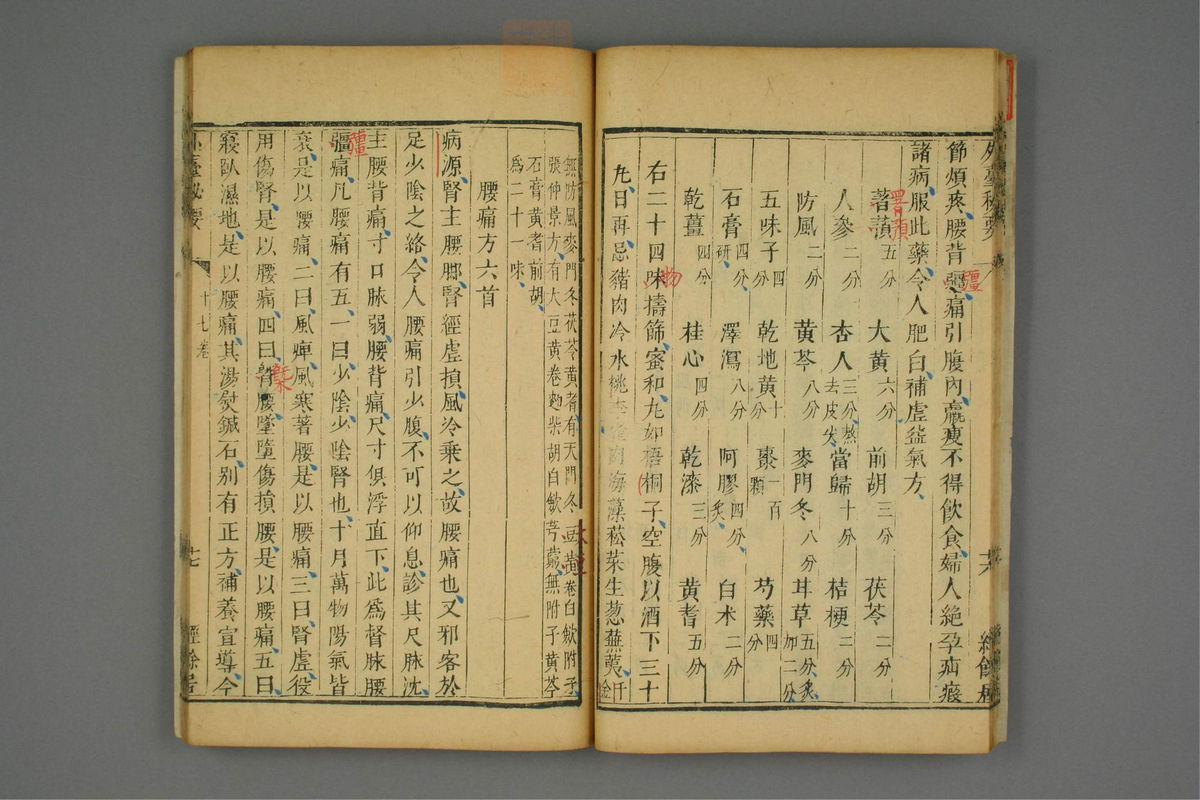 節煩疼腰背彊痛引腹內羸瘦不得飲食婦人絶孕疝瘕
諸病服此藥令人肥白補虛益氣方
薯蕷五分 大黄六分 前胡三分 茯苓二分
人參二分 杏人三分熬去皮尖 當歸十分 桔梗二分
防風二分 黄芩八分 麥門冬八分 甘草五分炙加二分
五味子四分 乾地黄十分 棗一百顆 芍藥四分
石膏四分研 澤瀉八分 阿膠四分炙 白朮二分
乾薑四分 桂心四分 乾漆三分 黄耆五分
右二十四味擣篩蜜和丸如梧桐子空腹以酒下三十
丸日再忌豬肉冷水桃李雀肉海藻菘菜生葱蕪荑千金
無防風麥門冬茯苓黄耆有天門冬豆黄卷白歛附子
張仲景方有大豆黄卷麴柴胡白歛芎藭無附子黄芩
石膏黄耆前胡
爲二十一味
腰痛方六首
病源腎主腰脚腎經虛損風冷乗之故腰痛也又邪客於
足少陰之絡令人腰痛引少腹不可以仰息診其尺脉沈
主腰背痛寸口脉弱腰背痛尺寸俱浮直下此爲督脉腰
彊痛凡腰痛有五一曰少陰少陰腎也十月萬物陽氣皆
衰是以腰痛二曰風痺風寒著腰是以腰痛三曰腎虛役
用傷腎是以腰痛四曰腰墜墮傷損腰是以腰痛五曰
寢臥濕地是以腰痛其湯熨鍼石别有正方補養宣導今
外臺秘要
十七卷
十七
經餘居